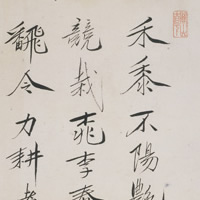 禾黍不陽艷
競栽桃李春
翻令力耕者